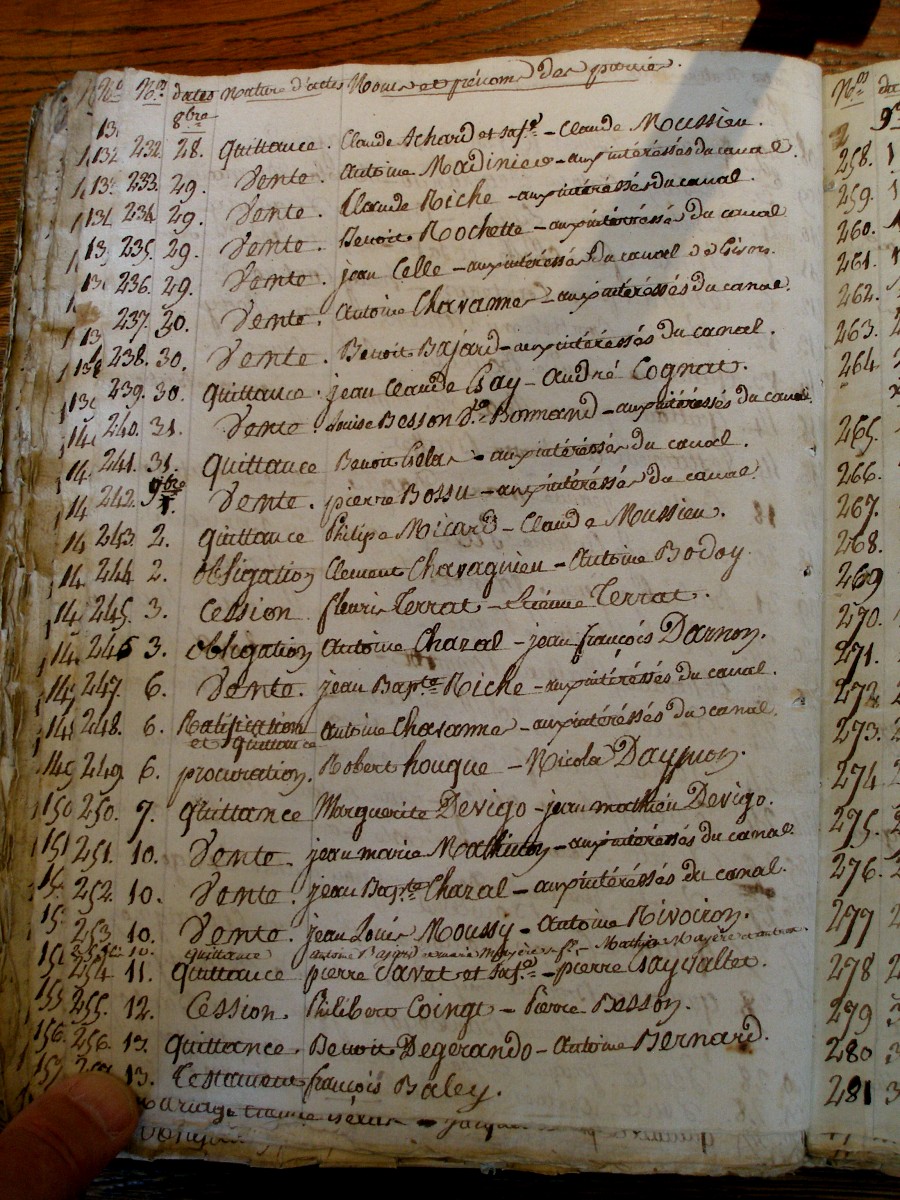 No. Nos. dates Nature d'actes Noms et prénoms des parties.
8bre
132 232. 28. quittance. Claude Achard et sa fe. - Claude Moussieu.
233. 29. Vente. Antoine Madinieo - aux intéressés du canal.
234. 29. Vente. Claude Riche - aux intéressés du canal.
235. 29. Vente. Benoit Rochette - aux intéressés du canal
236. 29. Vente. jean Celle - aux intéressés du canal de Gisors.
237. 30. Vente. Antoine Chavanne - aux intéressés du canal.
238. 30. Vente. Benoit Bajard - aux intéressés du canal.
239. 30 quittance. jean Claude Gay - André Cognat.
240. 31. Vente. Louise Besson Ve. Bonnand - aux intéressés du canal.
241. 31. quittance Benoit - aux intéressés du canal.
9bre
242. 1. Vente. pierre Bossu - aux intéressés du canal.
243. 2. quittance Philipe Micard - Claude Mussieu.
244 2. obligation Clement Chavagnieu - Antoine Bodoy.
245. 3. Cession. fleurie Terrat - Etienne Terrat.
246 3. obligation Antoine Chazal - jean françois Darnon.
247. 6. Vente. jean Bapte. Riche - aux intéressés du canal.
248. 6. Ratification Antoine Chavanne - aux intéressés du canal.
et quittance
149 249. 6. procuration. Robert houque - Nicola Daymon.
150 250. 7. quittance Marguerite Devigo - jean mathieu Devigo.
151 251. 10. Vente. jean marie Mathieu - aux intéressés du canal.
252. 10. Vente. jean Bapte. Chazal - aux intéressés du canal.
253. 10. Vente. jean Louis Moussy - Antoine Rivoiron.
10. quittance
254 11. quittance pierre Javet et sa fe. - pierre Gay
155 255. 12. Cession. Philibert Coingt - Pierre Besson.
156. 256. 13. quittance. Benoit Degerando - Antoine Bernard.
157. 13. Testament françois Baley.
Mariage
Nos.
258.
259.
260.
261.
262.
263.
264
265.
266.
267.
268.
269
270.
271.
272.
273.
274
275.
276.
277
278
279
280
281